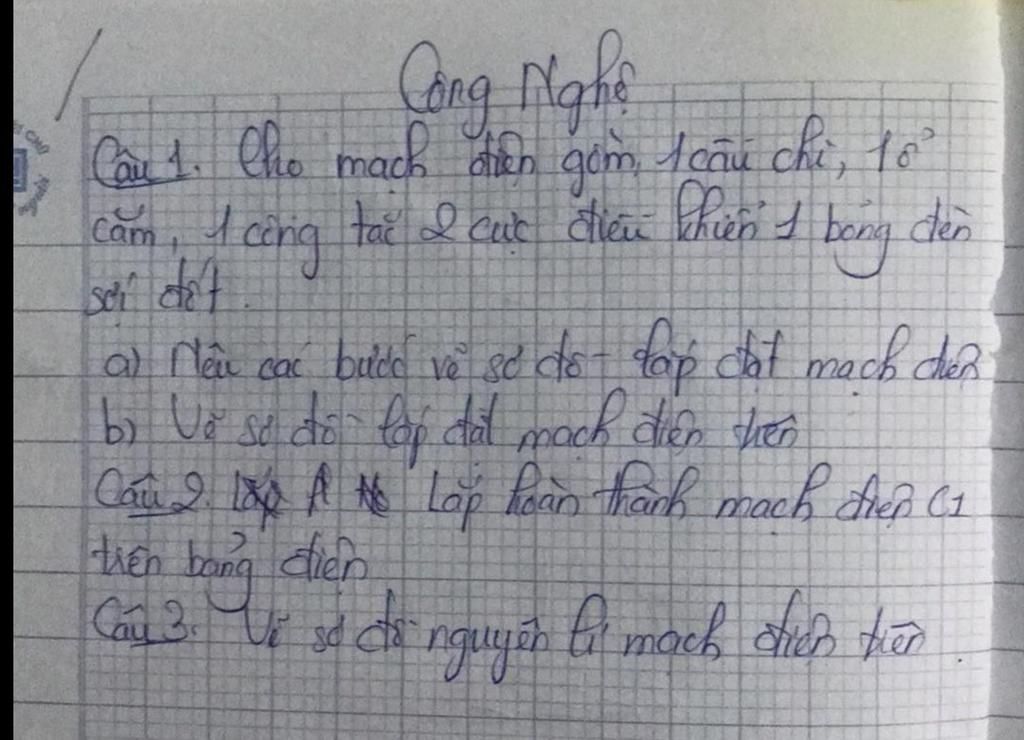 Công Nghệ
Câu 1. Cho mạch điện gồm, 1 cầu chì, 1 ổ
cắm, 1 công tắc 2 cực điều khiển 1 bóng đèn
sợi đốt.
a) Nêu các bước vẽ sơ đồ lắp đặt mạch điện
b) Vẽ sơ đồ lắp đặt mạch điện trên
Câu 2. Lắp hoàn thành mạch điện C1
trên bảng điện
Câu 3. Vẽ sơ đồ nguyên lí mạch điện trên.